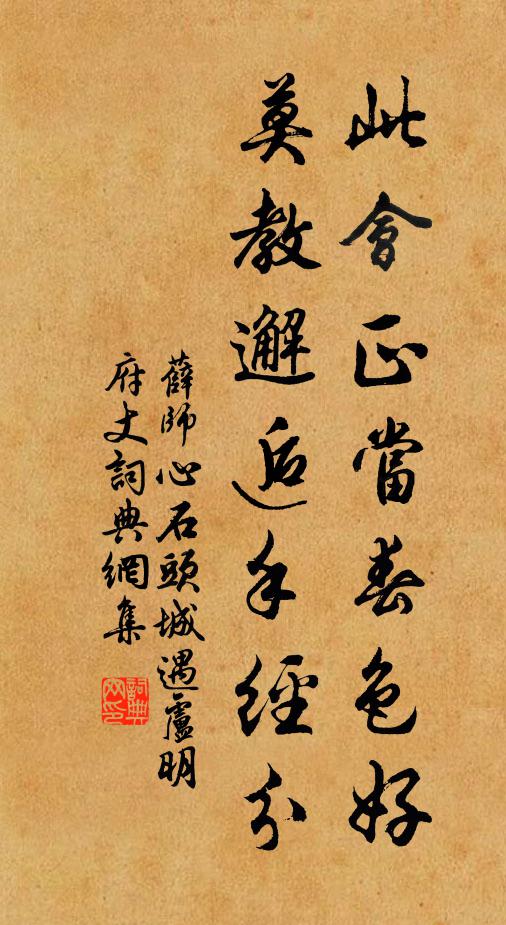 此會正當春色好
莫教邂逅手經分
薛師心石頭城遇盧明
府丈詞典網集
詞典
网印